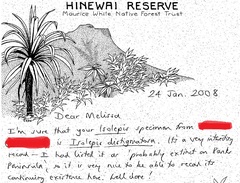 HINEWAI RESERVE
Maurice White Native Forest Trust
24 Jan. 2008
Dear Melissa
I'm sure that your Isolepis specimen from
is Isolepis distigmatosa. It's a very interesting
record — I had listed it as 'probably extinct on Banks
Peninsula', so it is very nice to be able to record its
continuing existence here. Well done!